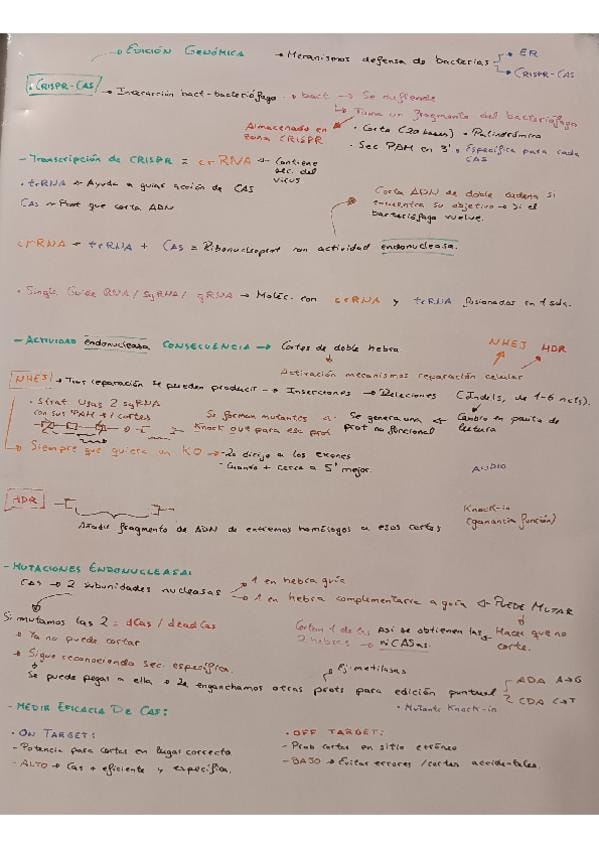 → EDICIÓN GENÓMICA → Mecanismos defensa de bacterias
• ER
• CRISPR-CAS
• CRISPR-CAS → Interacción bact-bacteriófago → bact → Se defiende
→ Toma un fragmento del bacteriófago
Almacenado en zona CRISPR
• Corto (20 bases) • Palindrómico
• Sec PAM en 3' • Específica para cada CAS
- Transcripción de CRISPR = crRNA → Contiene sec. del virus
• trRNA → Ayuda a guiar acción de CAS
CAS → Prot que corta ADN
Corta ADN de doble cadena si
encuentra su objetivo → Si el
bacteriófago vuelve.
crRNA + trRNA + CAS = Ribonucleoprot con actividad endonucleasa.
• Single Guide RNA / SgRNA / gRNA → Moléc. con crRNA y trRNA fusionados en 1 sola.
- ACTIVIDAD endonucleasa CONSECUENCIA → Cortes de doble hebra
NHEJ HDR
Activación mecanismos reparación celular
NHEJ → Tras reparación se pueden producir → Inserciones → Deleciones (Indels, de 1-6 ncts).
• Strat usas 2 sgRNA
con sus PAM → 2 cortes
Se forman mutantes
Knock out para esa prot
Se genera una prot no funcional
Cambio en pauta de lectura
→ Siempre que quiera un KO → Lo dirijo a los exones
- Cuando + cerca a 5' mejor.
AUDIO
HDR
Añadir fragmento de ADN de extremos homólogos a esos cortes
Knock-in
(ganancia función)
- MUTACIONES ENDONUCLEASA:
CAS → 2 subunidades nucleasas
→ 1 en hebra guía
→ 1 en hebra complementaria a guía → PUEDE MUTAR
Si mutamos las 2 = dCas / deadCas
• Ya no puede cortar
• Sigue reconociendo sec. específica.
Cortan 1 de las 2 hebras → Así se obtienen las niCASas.
Hacer que no corte.
Ej: metilasas
Se puede pegar a ella → Le enganchamos otras prots para edición puntual
ADA A→G
CDA C→T
• Mutante Knock-in
- MEDIR EFICACIA DE CAS:
• ON TARGET:
- Potencia para cortar en lugar correcto
- ALTO → Cas + eficiente y específica.
• OFF TARGET:
- Prob cortar en sitio erróneo
- BAJO → Evitar errores / cortes accidentales.